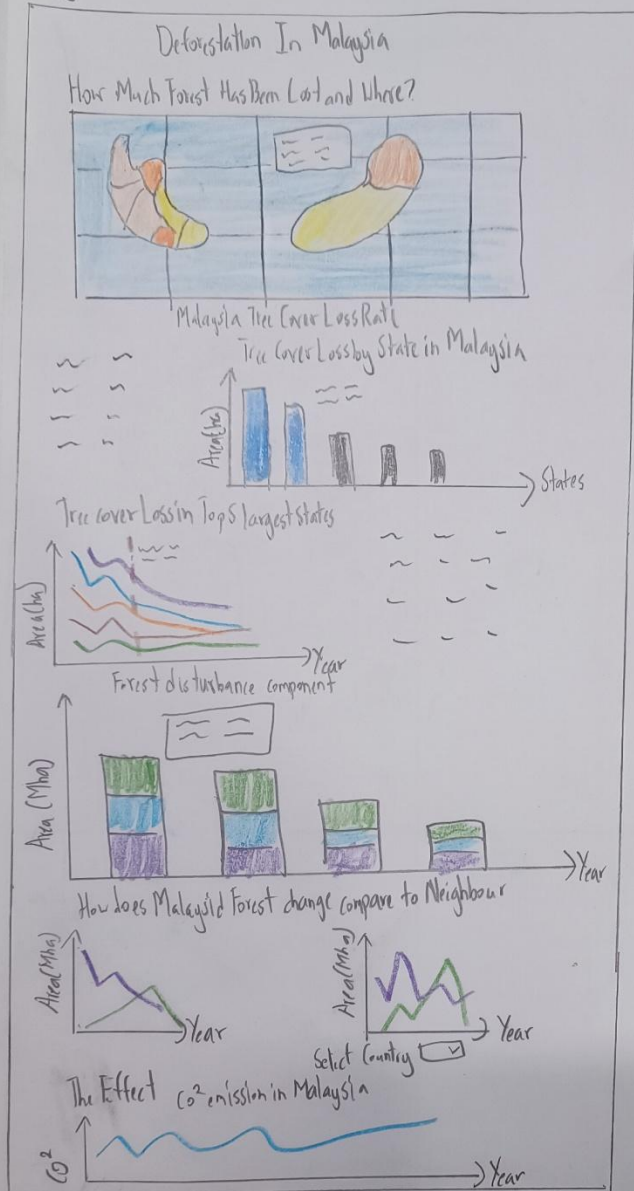 Deforestation In Malaysia
How Much Forest Has Been Lost and Where?
Malaysia Tree Cover Loss Rate
Tree Cover Loss by State in Malaysia
Area(ha)
States
Tree cover Loss in Top 5 largest states
Area(ha)
Year
Forest disturbance component
Area (Mha)
Year
How does Malaysia Forest change compare to Neighbour
Area(Mha)
Year
Area(Mha)
Year
Select Country
The Effect
CO² emission in Malaysia
CO²
Year